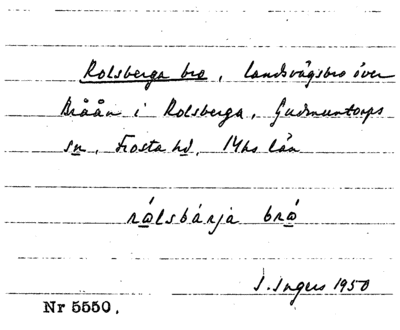 Rolsberga bro, landsvägsbro över
Bråån i Rolsberga, Gudmuntorps
sn, Frosta hd, Mhs län
rálsbárja brá
I. Ingers 1950
Nr 5550.